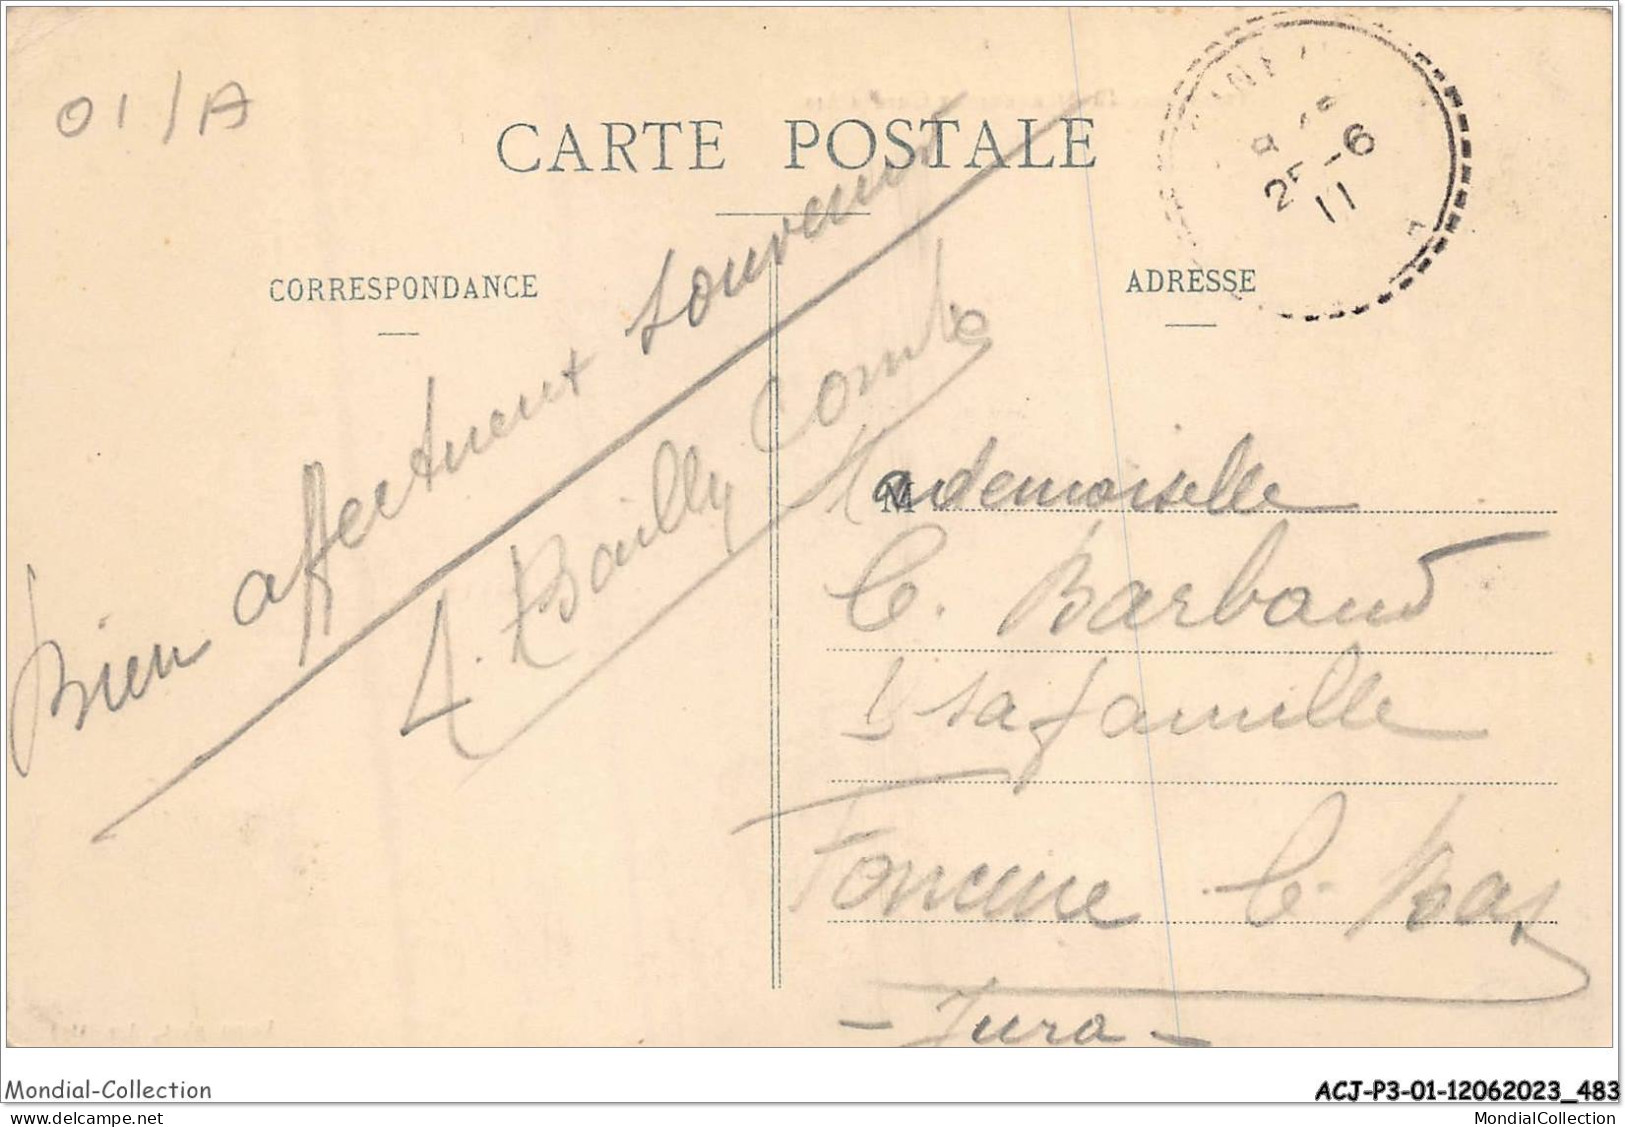 01/A
CARTE POSTALE
25-6
11
CORRESPONDANCE
ADRESSE
Bien affectueux souvenir
A. Bailly Comte
Mademoiselle
C. Barbaud
& sa famille
Foncine le Bas
- Jura -
Mondial-Collection
ACJ-P3-01-12062023_483
www.delcampe.net
MondialCollection